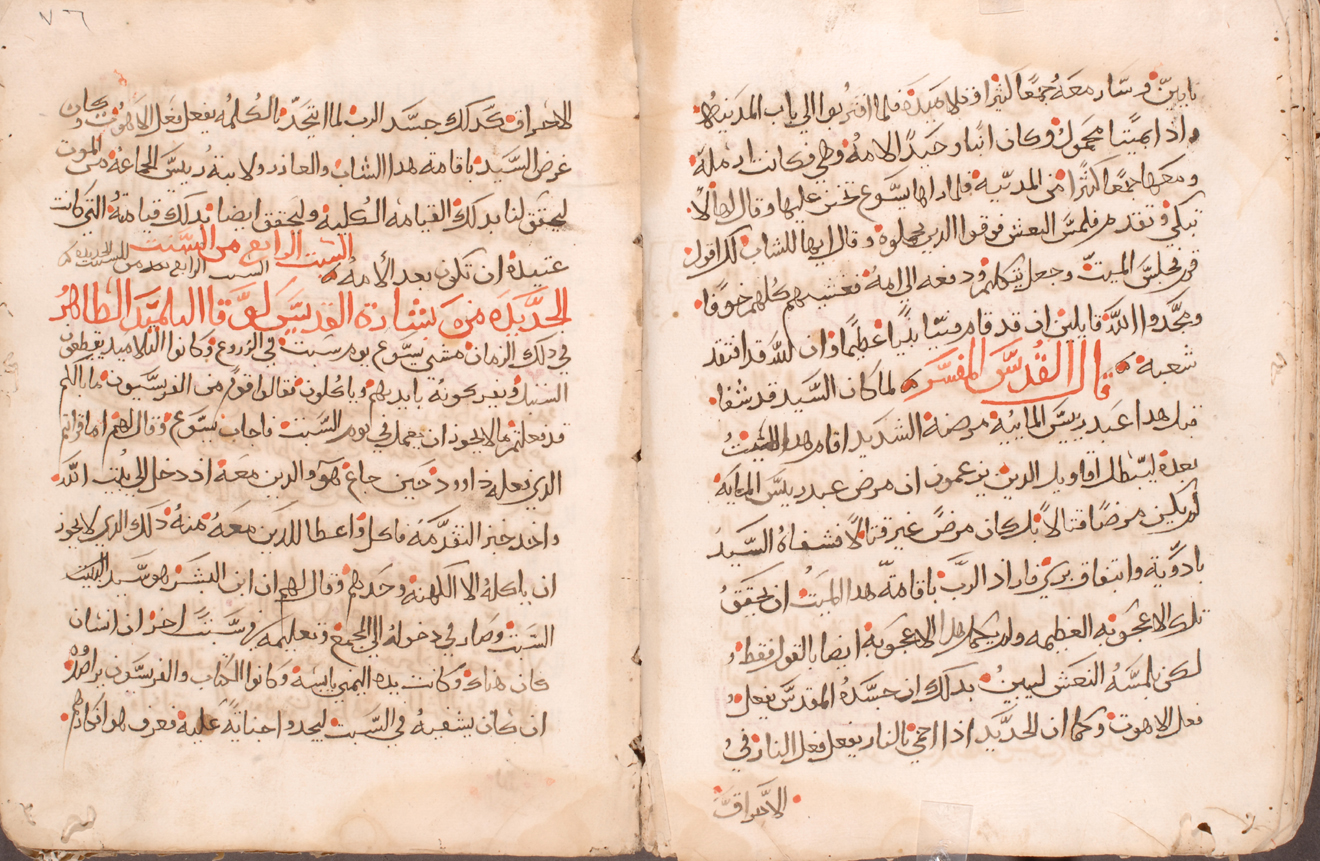 نايين وسار معه جمعًا كثيرا وتلاميذه فلما اقتربوا الي باب المدينه
واذا ميتًا محمول وكان ابنا وحيدًا لامه وهي فكانت ارملة
ومعها جمعًا كثيرًا من المدينه فلما راها يسوع تحنن عليها وقال لها لا
تبكي وتقدم فلمس النعش فوقفوا الذين يحملوه وقال ايها الشاب لك اقول
فجلس الميت وجعل يتكلم ودفعه الي امه فغشيهم كلهم خوفا
ومجدوا الله قايلين ان قد قام فينا نبيًا عظيمًا وان الله قد افتقد
شعبه قال القديس المفسر لما كان السيد قد شفا
قبل هذا عبد ريس المايه مرضه الشديد اقام هذا الميت
بعده ليبطل اقاويل الذين يزعمون ان مرض عبد ريس المايه
لم يكن مرضًا قتالاً بل كان مرضً غير قتالاً فشفاه السيد
بادوية وباتفاق فاراد الرب باقامة هذا الميت ان يحقق
تلك الاعجوبه العظيمه ولم يكمل هذا الاعجوبة ايضا بالقول فقط و
لكن بلمسه النعش ليبين بذلك ان جسده المقدس يفعل
فعل الاهوت وكما ان الحديد اذا احمي بالنار يفعل فعل النار في
الاحراق
٧٦
الاحراق كذلك جسد الرب لما اتحد بالكلمه يفعل فعل الاهوت وكان
غرض السيد باقامه هذا الشاب والعازر ولابنة ريس الجماعة من الموت
ليحقق لنا بذلك القيامه الكليه وليحقق ايضا بذلك قيامته التي كانت
عتيده ان تكون بعد الامه السبت الرابع من السبت
السبت الرابع بعد من السبت الجديده
الجديده من بشارة القديس لوقا التلميد الطاهر
في ذلك الزمان مشي يسوع يوم سبت في الزروع وكانوا التلاميذ يقطفون
السنبل ويفركونه بايديهم وياكلون فقالوا قوم من الفريسيون ما بالكم
قد فعلتم ما لا يجوز ان يعمل في يوم السبت فاجاب يسوع وقال لهم اما قراتم
الذي فعله داوود حين جاع هو والذين معه اذ دخل الي بيت الله
واخد خبز التقدمه فاكل واعطا للذين معه منه ذلك الذي لا يجوز
ان ياكله الا الكهنة وحدهم وقال لهم ان ابن البشر هو سيد السبت
السبت وصار في دخوله الي المجمع وتعليمه في سبت اخر ان انسان
كان هناك وكانت يده اليمين يابسه وكانوا الكتاب والفريسيون يراصدوه
ان كان يشفيه في السبت ليجدوا عليه فعرف هو افكارهم